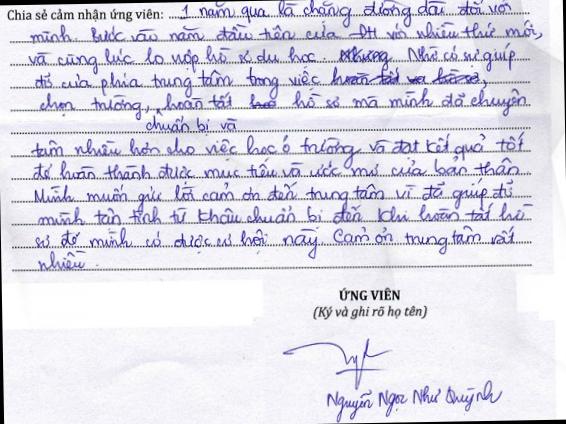 Chia sẻ cảm nhận ứng viên: 1 năm qua là chặng đường dài đối với
mình. Bước vào năm đầu tiên của ĐH với nhiều thứ mới,
và cũng lúc lo nộp hồ sơ du học. Nhưng Nhờ có sự giúp
đỡ của phía trung tâm trong việc hoàn tất và hồ sơ,
chọn trường, hoàn tất hồ sơ mà mình đã chuyên
chuẩn bị và
tâm nhiều hơn cho việc học ở trường và đạt kết quả tốt
để hoàn thành được mục tiêu và ước mơ của bản thân
Mình muốn gửi lời cảm ơn đến trung tâm vì đã giúp đỡ
mình tận tình từ khâu chuẩn bị đến khi hoàn tất hồ
sơ để mình có được cơ hội này. Cảm ơn trung tâm rất
nhiều.
ỨNG VIÊN
(Ký và ghi rõ họ tên)
Nguyễn Ngọc Như Quỳnh